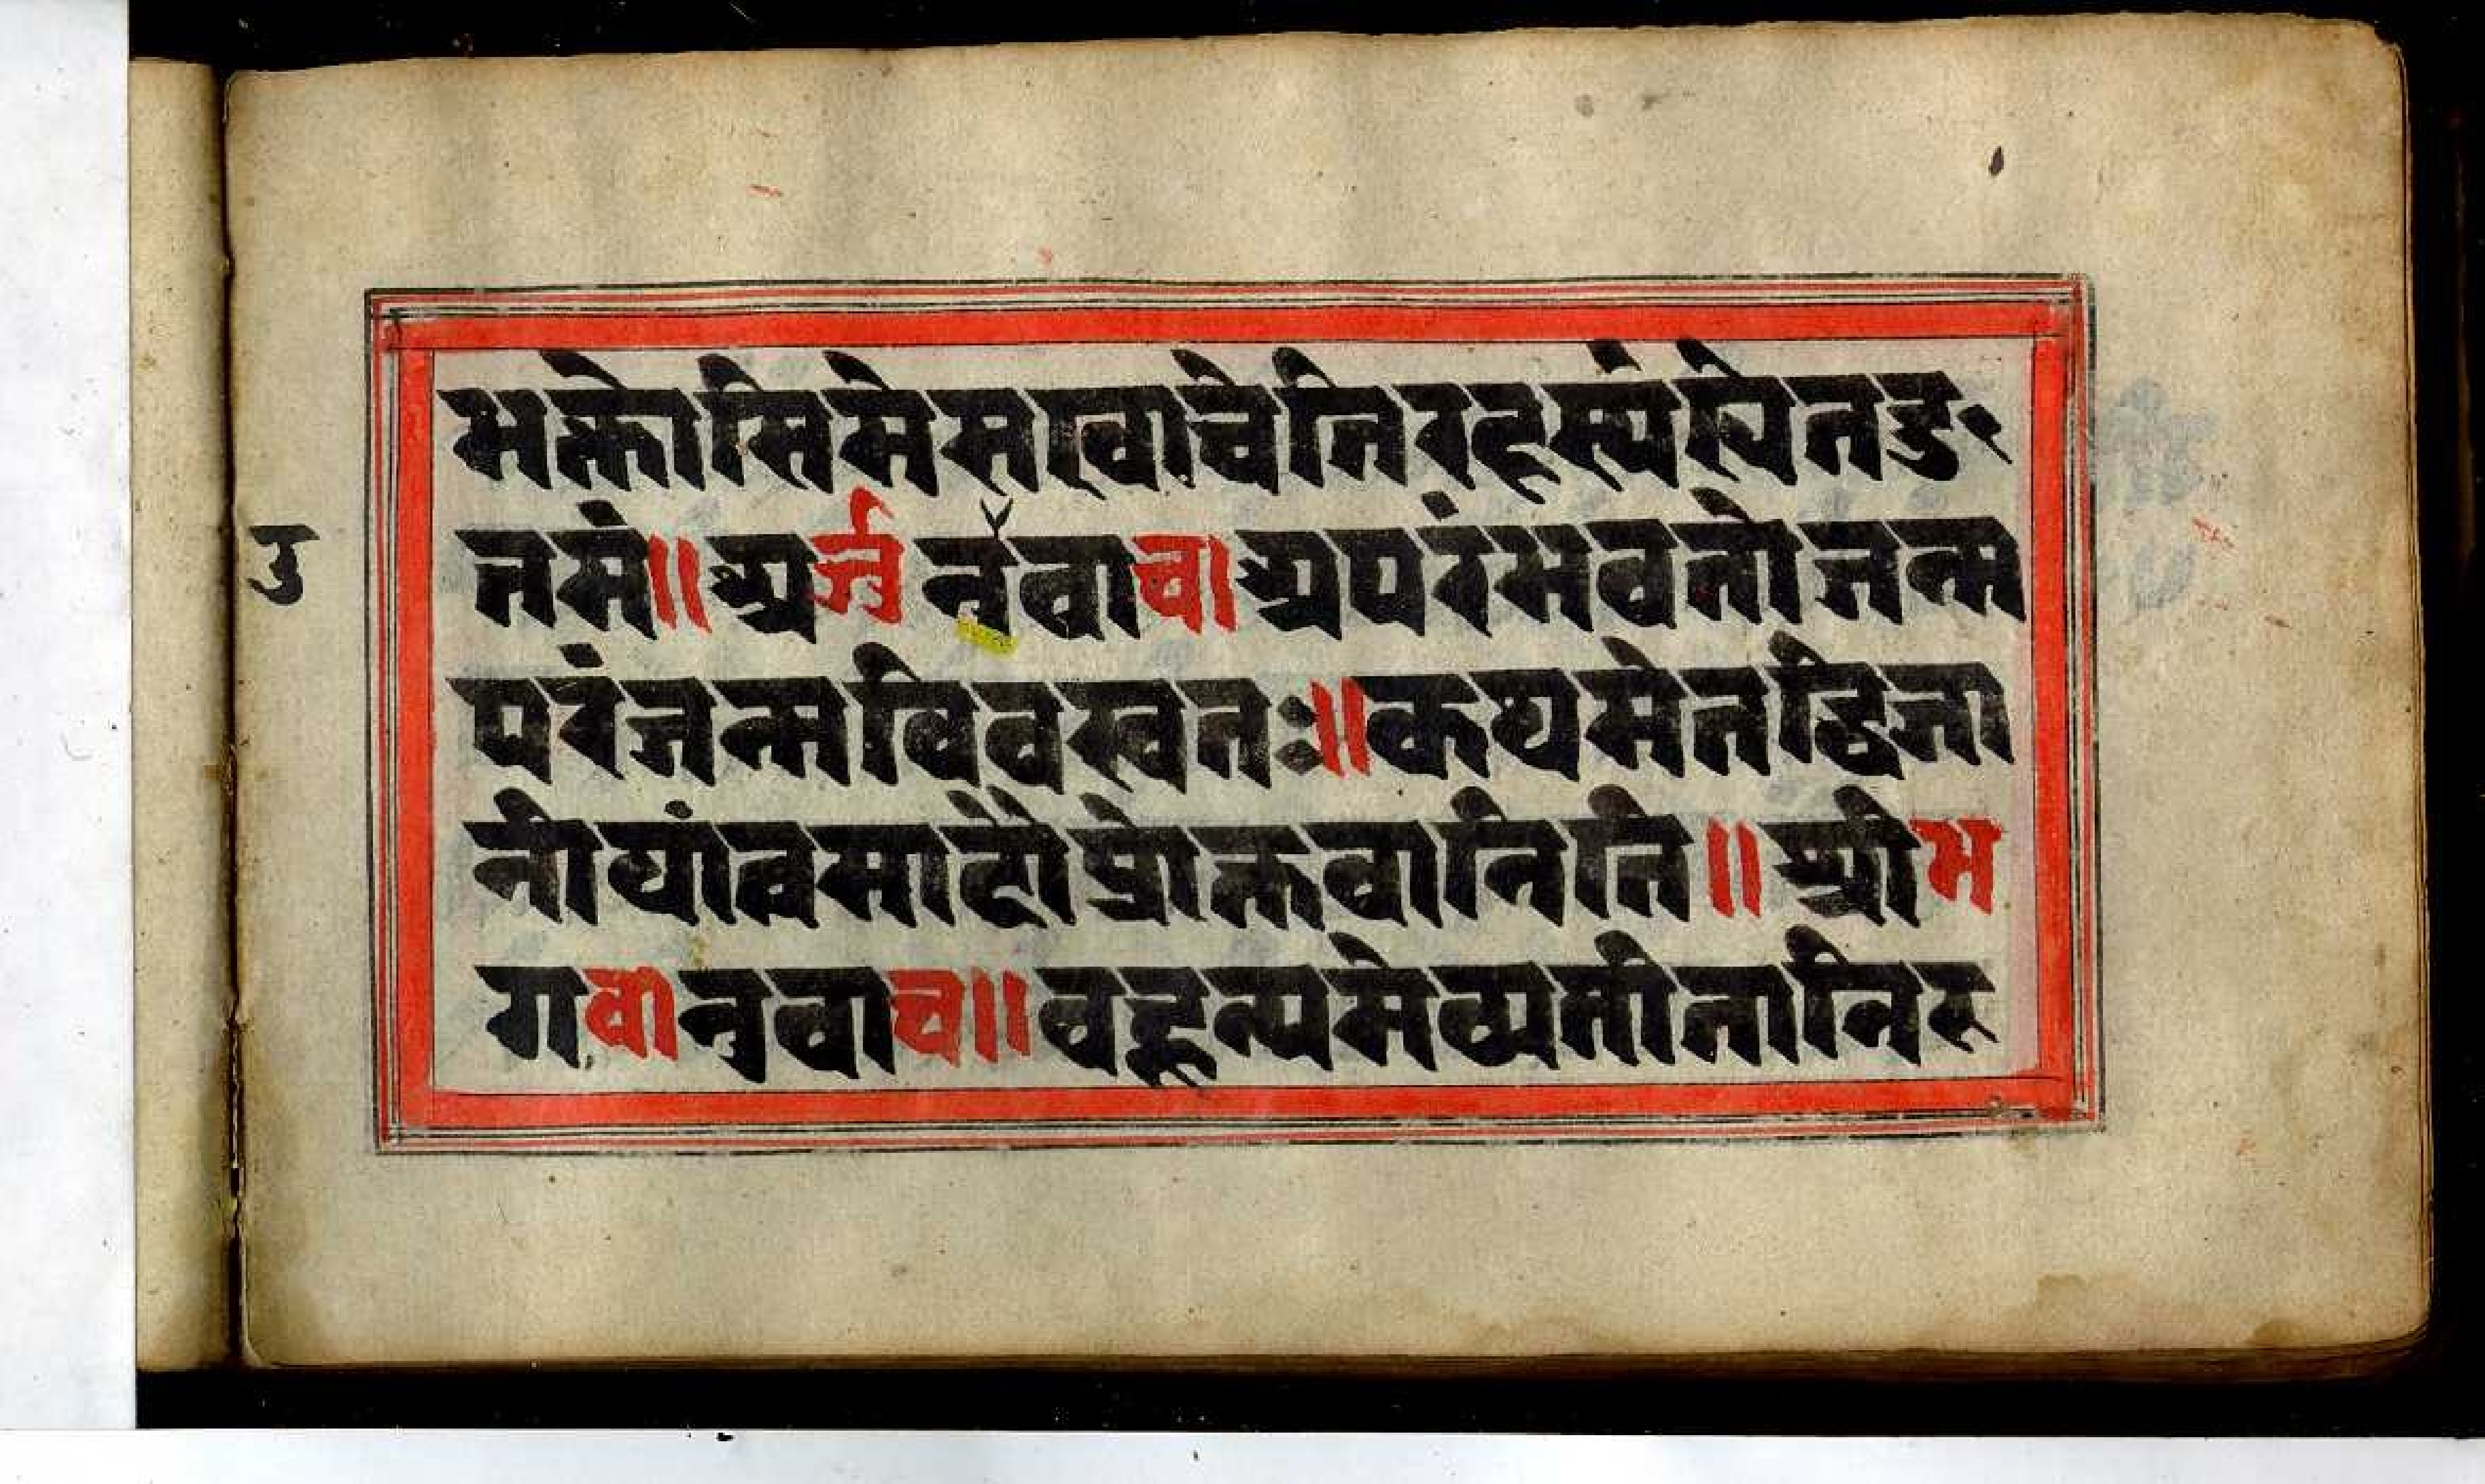 भक्तोसिमेसखाचेतिरहस्यंह्येतदुत्
तमं॥अर्जुनउवाच।अपरंभवतोजन्म
उ
परंजन्मविवस्वतः॥कथमेतद्विजा
नीयांत्वमादौप्रोक्तवानिति॥श्रीभ
गवानुवाच॥बहून्यमेव्यतीतानिरु